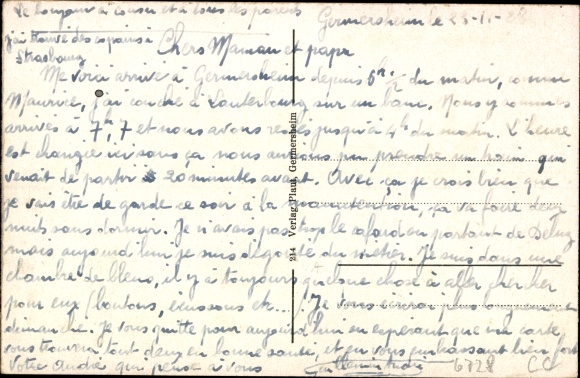 Le bonjour à cousin et à tous les parents
j'ai trouvé des copains à
Strasbourg
Germersheim le 23-11-
Chers Maman et papa
Me voici arrivé à Germersheim depuis 5h 1/2 du matin, comme
Maurice, j'ai couché à Lauterbourg sur un banc. Nous y sommes
arrivés à 7h,7 et nous avons restés jusqu'à 4h du matin. L'heure
est changée ici sans ça nous aurions pu prendre un train qui
venait de partir 20 minutes avant. Avec ça je crois bien que
je vais être de garde ce soir à la ça va faire deux
nuits sans dormir. Je n'avais pas trop le cafard en partant de
mais aujourd'hui je suis dégoûté du métier. Je suis dans une
chambre de bleus, il y a toujours quelque chose à aller chercher
pour eux (boutons, écussons etc...). Je vous écrirai plus longuement
dimanche. Je vous quitte pour aujourd'hui en espérant que ma carte
vous trouvera tout deux en bonne santé, et en vous embrassant bien fort
Votre André qui pense à vous
6728 CC
214 Verlag Plaut, Germersheim